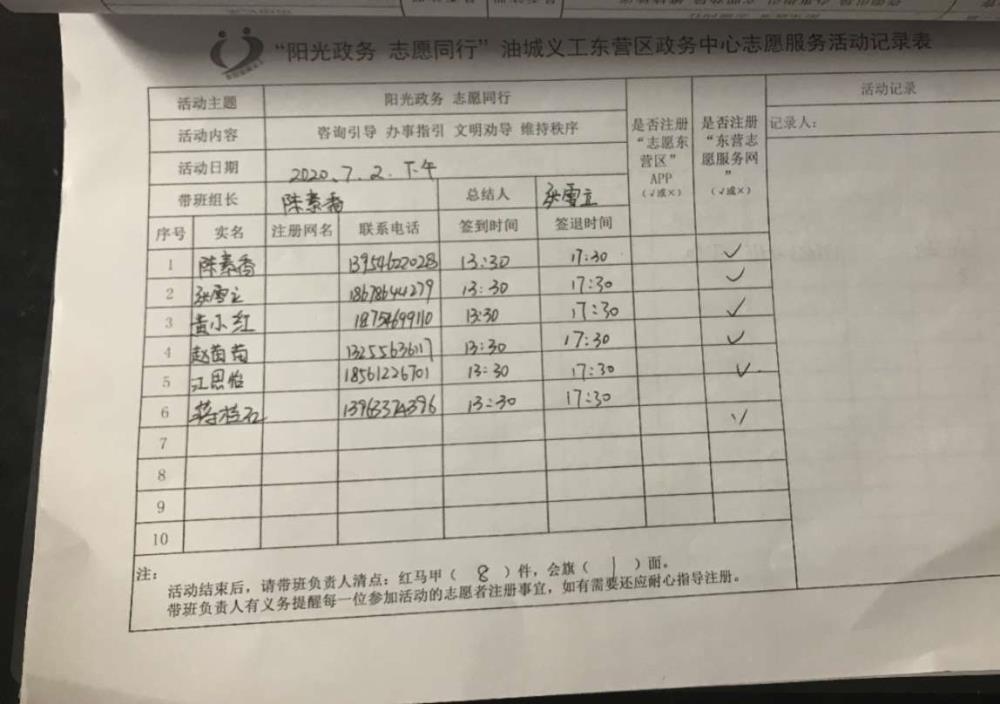 “阳光政务 志愿同行”油城义工东营区政务中心志愿服务活动记录表
活动主题 阳光政务 志愿同行
活动内容 咨询引导 办事指引 文明劝导 维持秩序
活动日期 2020.7.2.下午
带班组长 陈素香 总结人 张雪立
是否注册“志愿东营区”APP(√或×)
是否注册“东营志愿服务网”(√或×)
活动记录
记录人:
序号 实名 注册网名 联系电话 签到时间 签退时间
1 陈素香 13954622028 13:30 17:30 √
2 张雪立 18678644279 13:30 17:30 √
3 黄小红 18754699110 13:30 17:30 √
4 赵茵茵 13255636117 13:30 17:30 √
5 江思怡 18561226701 13:30 17:30 √
6 13963374396 13:30 17:30 √
7
8
9
10
注:
活动结束后,请带班负责人清点:红马甲( 8 )件,会旗( 1 )面。
带班负责人有义务提醒每一位参加活动的志愿者注册事宜,如有需要还应耐心指导注册。